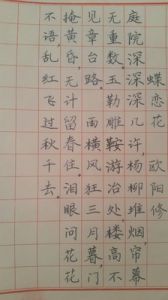 蝶恋花 欧阳修
庭院深深深几许,杨柳堆烟,帘幕
无重数。玉勒雕鞍游冶处,楼高不
见章台路。雨横风狂三月暮,门
掩黄昏,无计留春住。泪眼问花花
不语,乱红飞过秋千去。